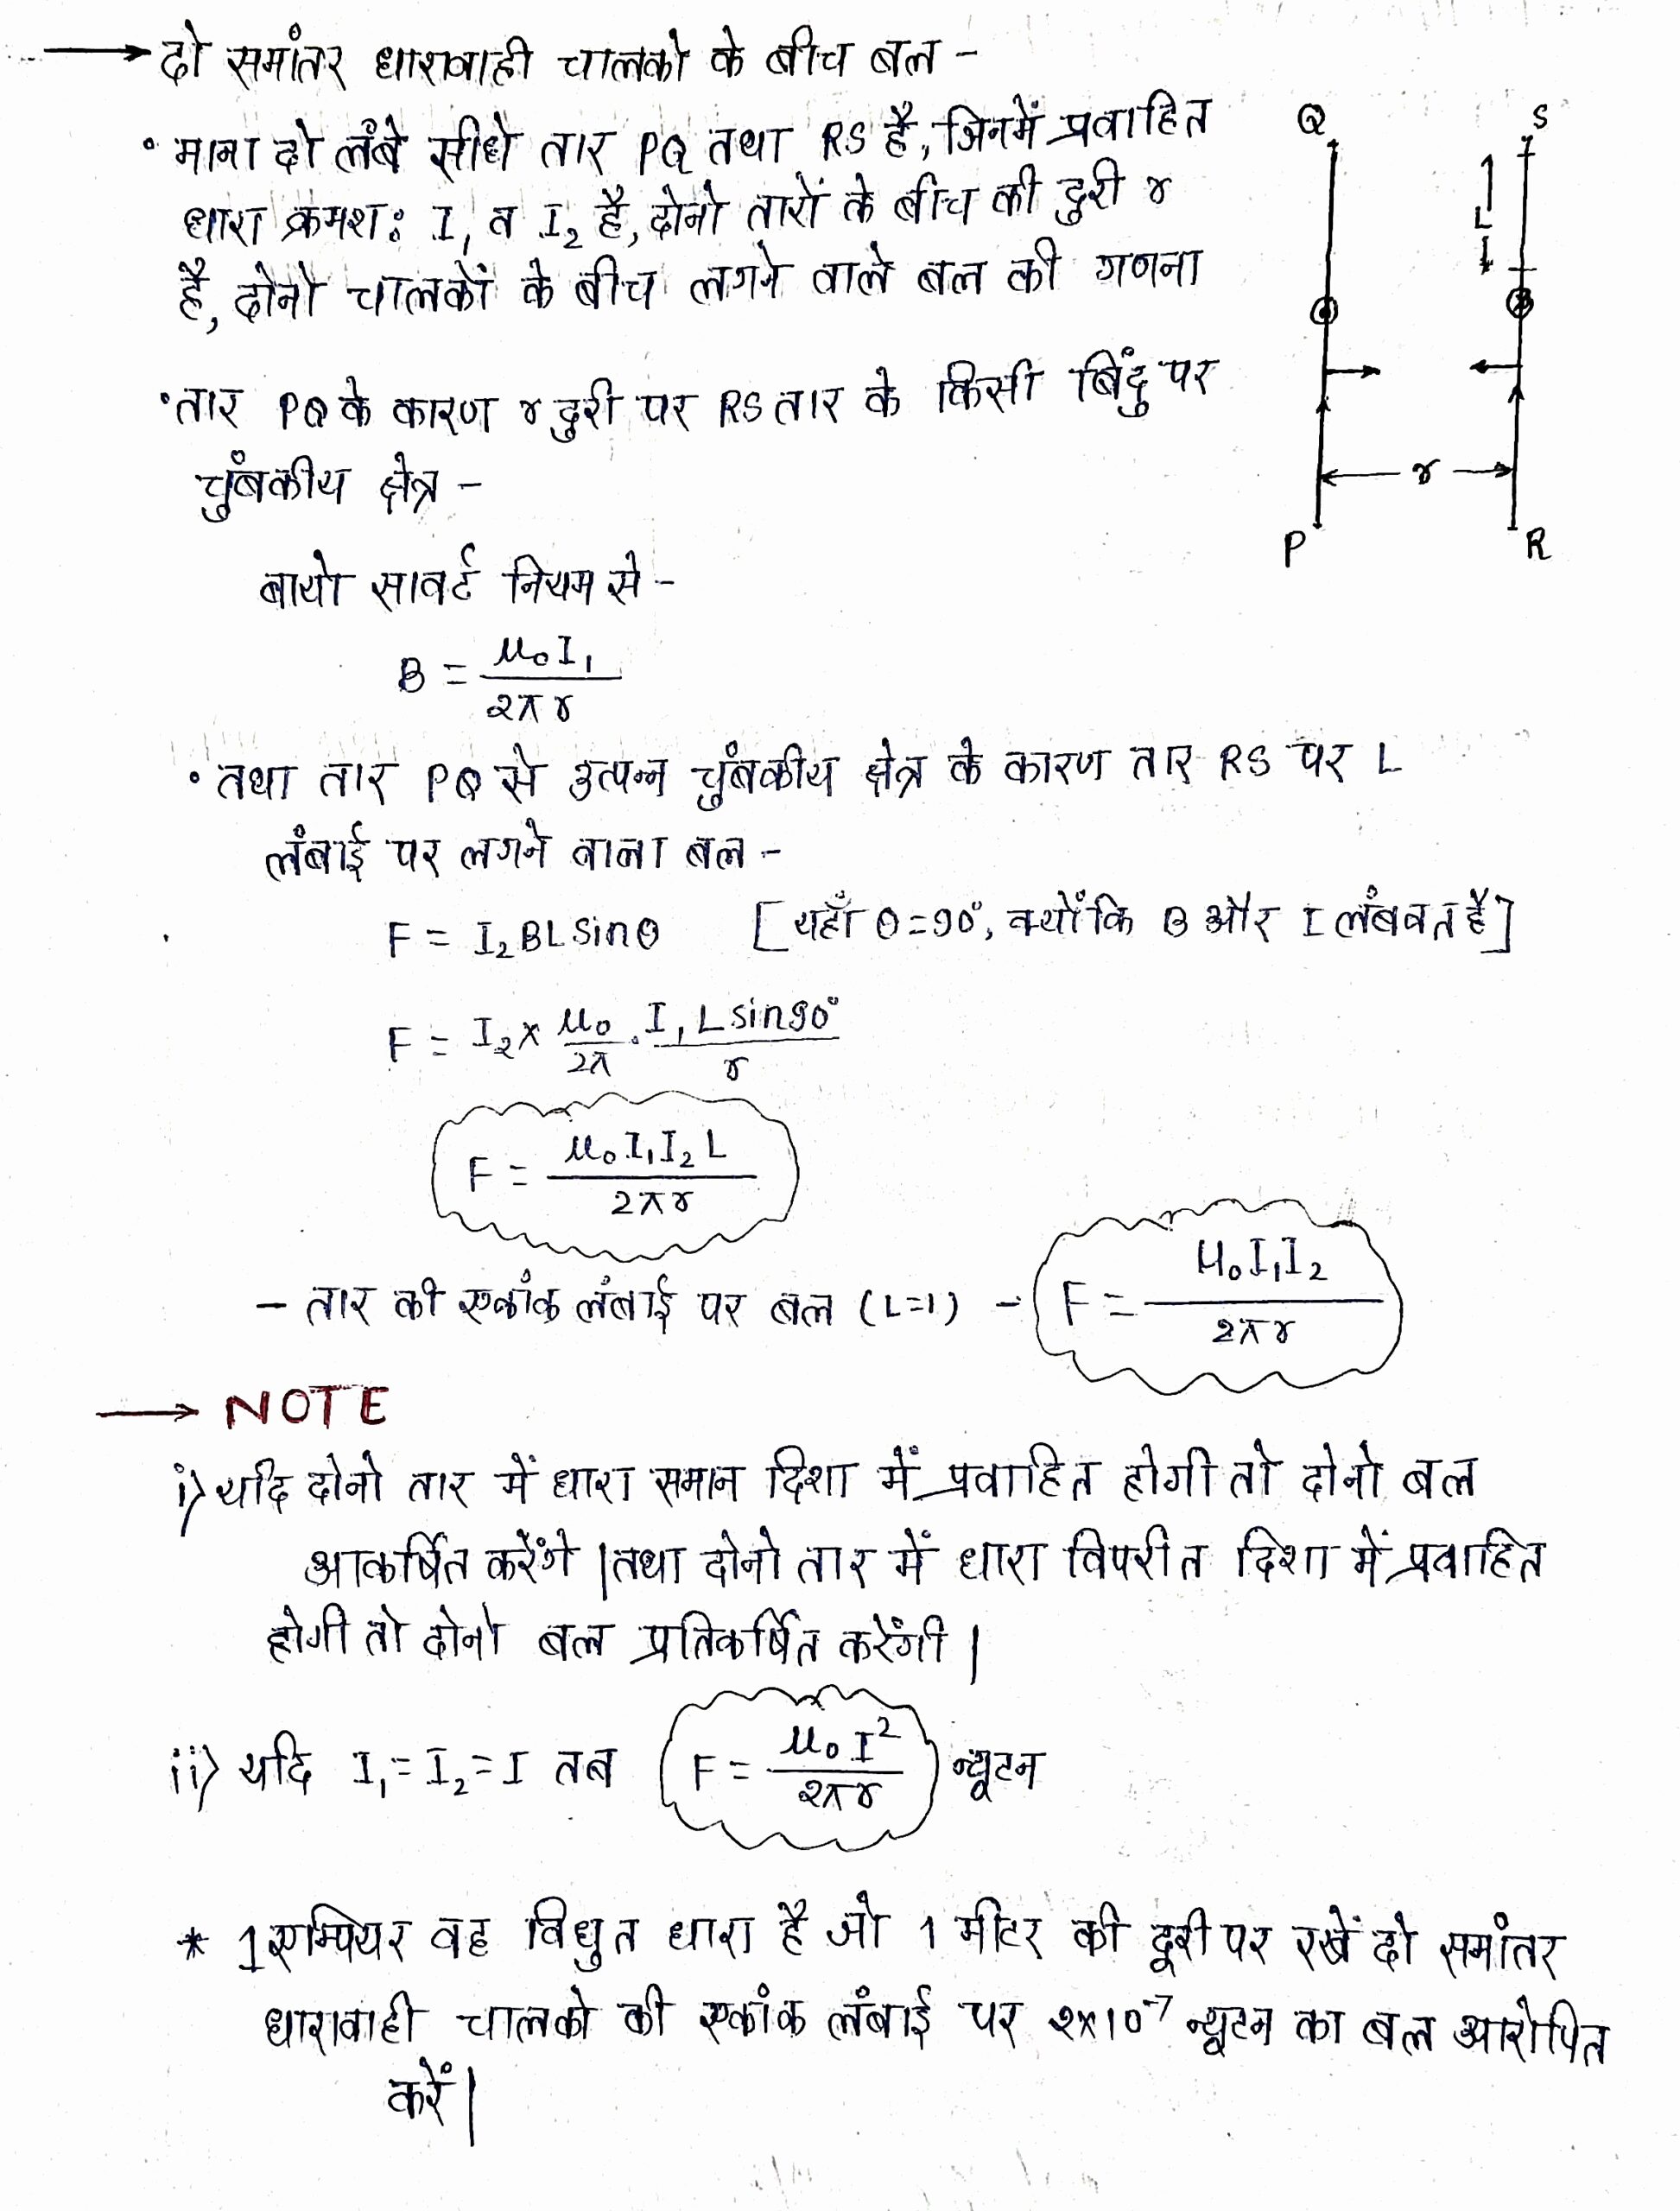 → दो समांतर धारावाही चालको के बीच बल -
• माना दो लंबे सीधे तार PQ तथा RS है, जिनमें प्रवाहित
धारा क्रमश: I₁ व I₂ है, दोनो तारों के बीच की दुरी r
है, दोनो चालकों के बीच लगने वाले बल की गणना
Q S
L
r
P R
• तार PQ के कारण r दुरी पर RS तार के किसी बिंदु पर
चुंबकीय क्षेत्र -
बायो सावर्ट नियम से -
B = μ₀I₁ / 2πr
• तथा तार PQ से उत्पन्न चुंबकीय क्षेत्र के कारण तार RS पर L
लंबाई पर लगने वाला बल -
F = I₂BLsinθ [यहाँ θ=90°, क्योंकि B और I लंबवत है]
F = I₂ × μ₀/2π . I₁Lsin90°/r
F = μ₀I₁I₂L / 2πr
- तार की एकांक लंबाई पर बल (L=1) - F = μ₀I₁I₂ / 2πr
→ NOTE
i) यदि दोनो तार में धारा समान दिशा में प्रवाहित होगी तो दोनो बल
आकर्षित करेंगे | तथा दोनो तार में धारा विपरीत दिशा में प्रवाहित
होगी तो दोनो बल प्रतिकर्षित करेंगी |
ii) यदि I₁=I₂=I तब F = μ₀I² / 2πr न्यूटन
* 1 एम्पियर वह विधुत धारा है जो 1 मीटर की दूरी पर रखें दो समांतर
धारावाही चालको की एकांक लंबाई पर 2×10⁻⁷ न्यूटन का बल आरोपित
करें |